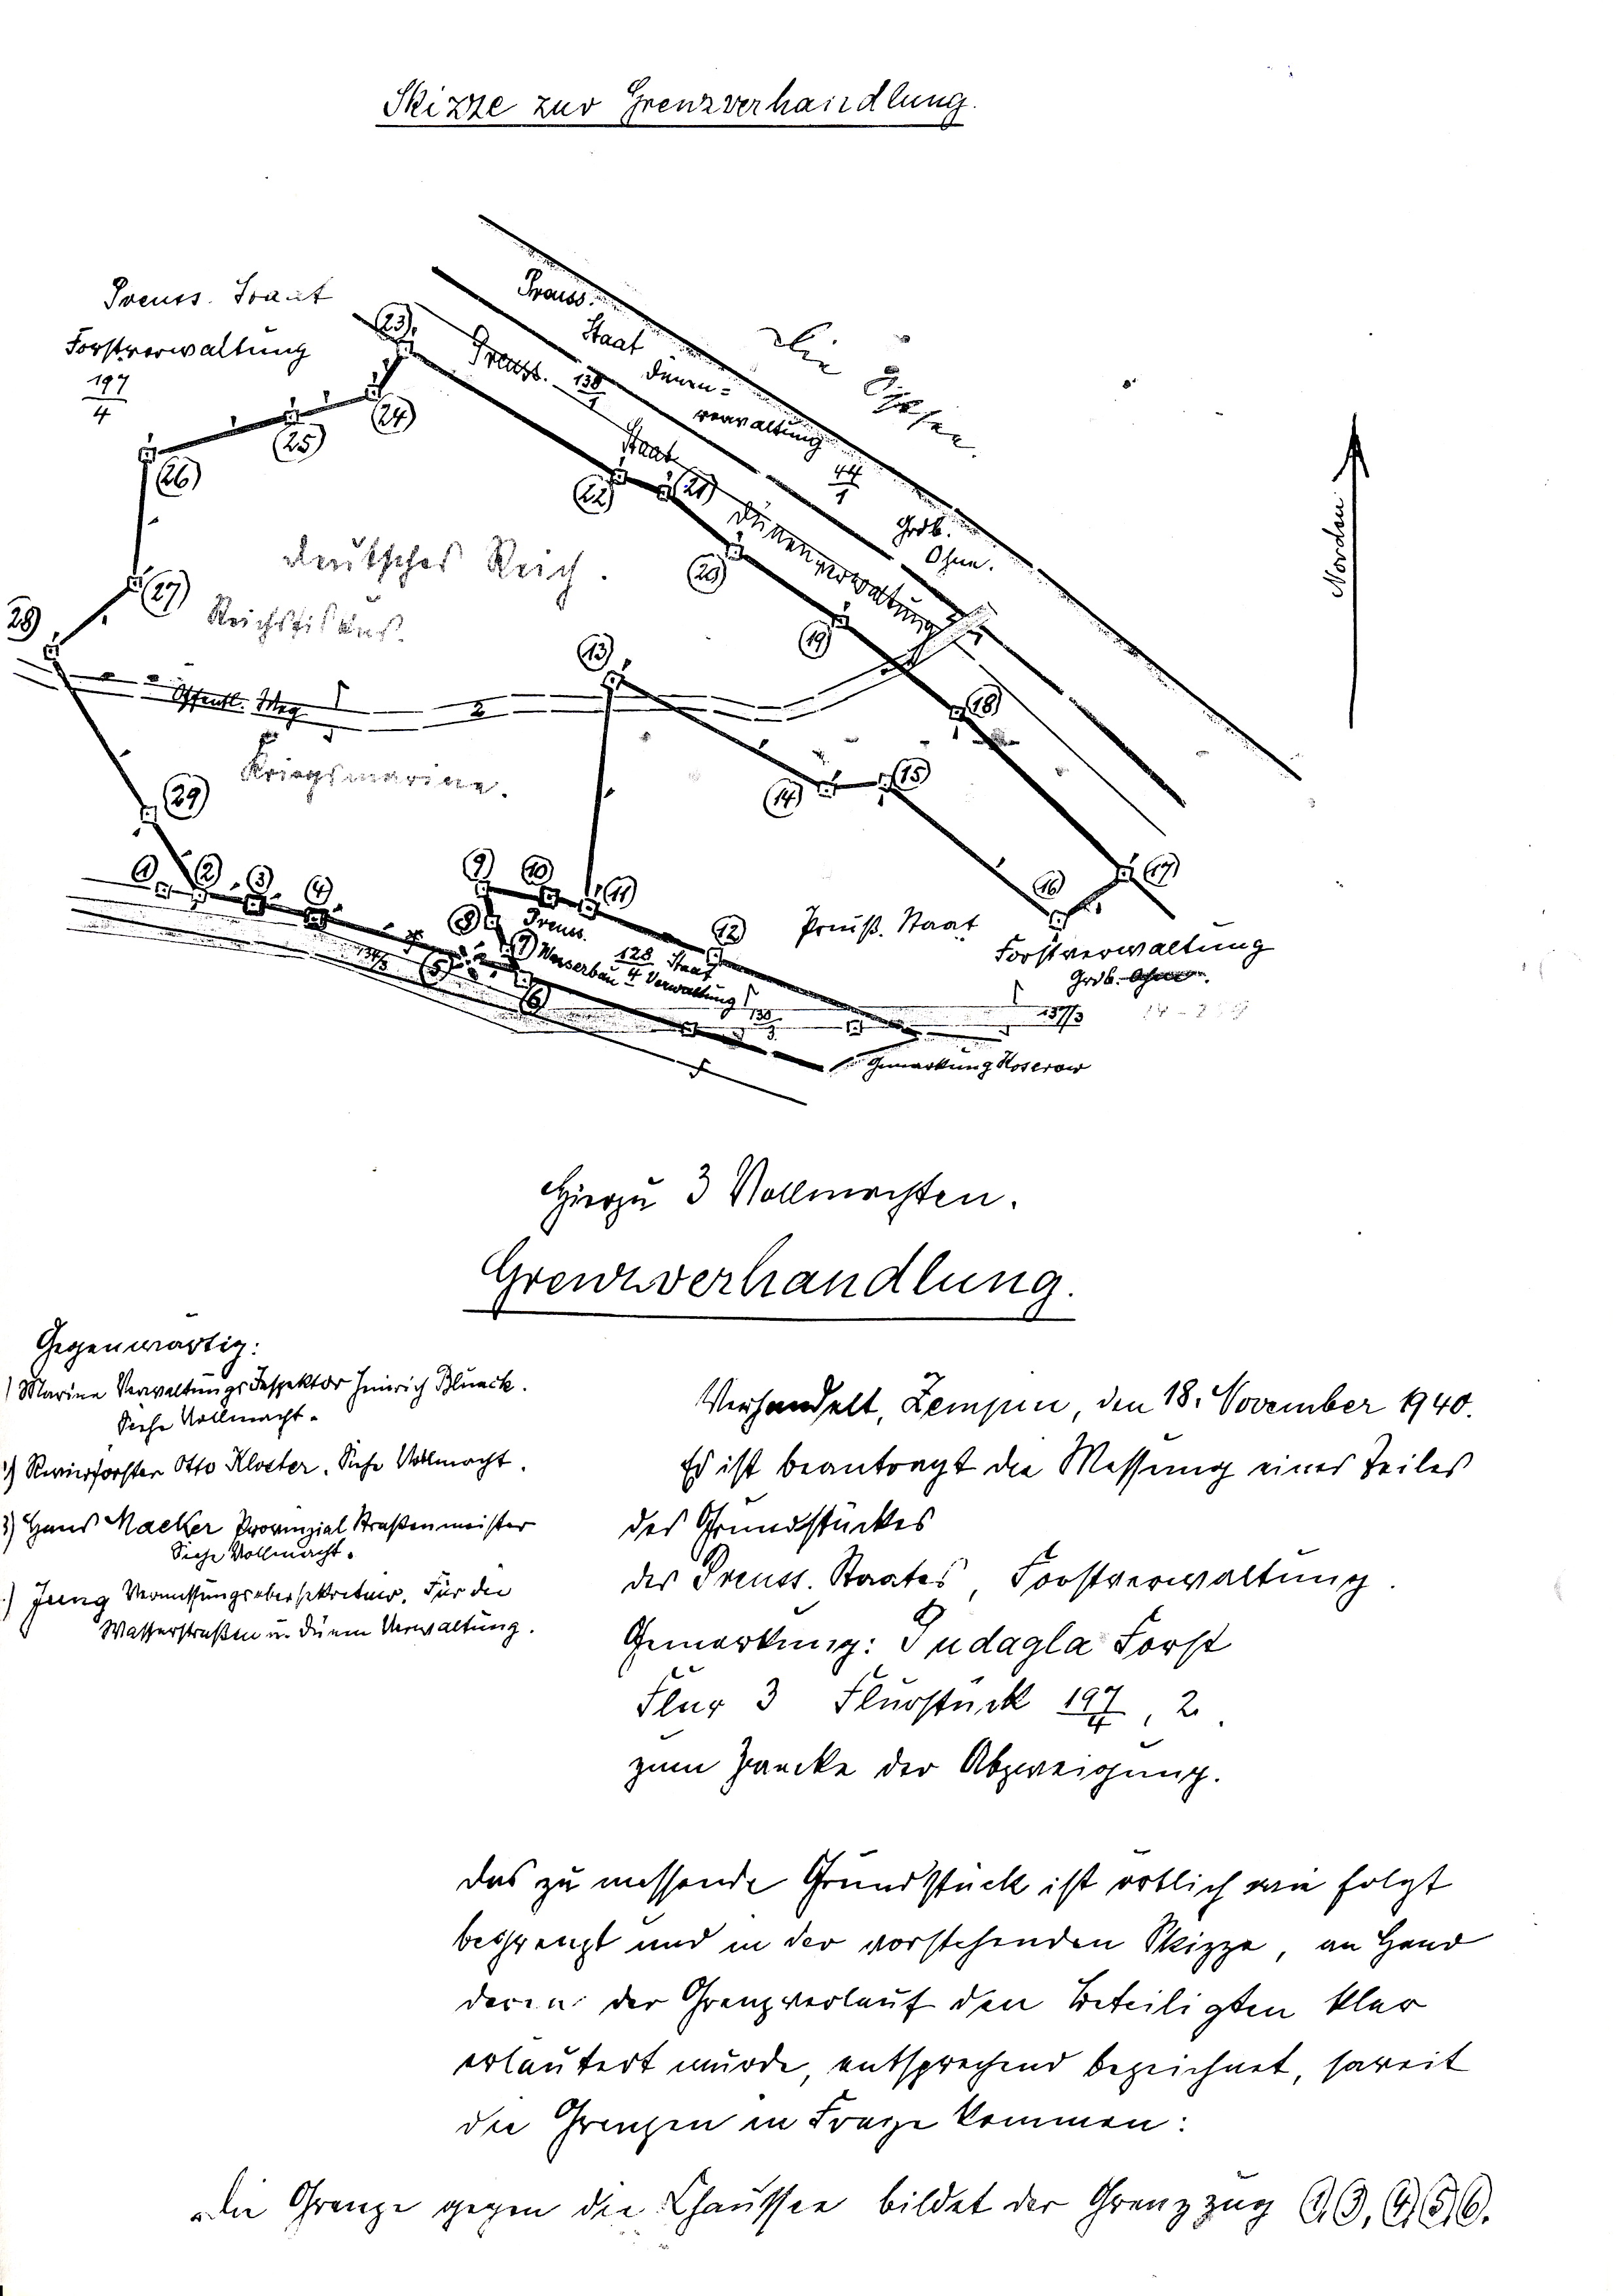 Skizze zur Grenzverhandlung.
Preuss. Staat
Forstverwaltung
197
4
Preuss.
Staat
Dünen-
verwaltung
44
1
Grdb.
Ohne.
Die Ostsee
Norden
Preuss. 138
1
Staat
Dünenverwaltung
(23)
(24)
(25)
(26)
(22)
(21)
(20)
(19)
(18)
(17)
(27)
28)
(13)
deutsches Reich.
Reichsfiskus.
Öffentl. Weg
2
Kriegsmarine.
(29)
(14)
(15)
(16)
(1)
(2)
(3)
(4)
(9)
(10)
(11)
(12)
(8)
(7)
(5)
(6)
Preuss. Staat
Wasserbau Verwaltung
128
4
Preuß. Staat
Forstverwaltung
Grdb. Ohne.
137/3
Gemarkung Koserow
Hierzu 3 Vollmachten.
Grenzverhandlung.
Gegenwärtig:
) Marine Verwaltungs Inspektor Heinrich Blunck.
Siehe Vollmacht.
) Revierförster Otto Kloster. Siehe Vollmacht.
3) Hans Macker Provinzial Straßenmeister
Siehe Vollmacht.
.) Jung Vermessungsobersekretär. Für die
Wasserstraßen u. Dünen Verwaltung.
Verhandelt, Zempin, den 18. November 1940.
Es ist beantragt die Messung eines Teiles
des Grundstückes
des Preuss. Staates, Forstverwaltung.
Gemarkung: Pudagla Forst
Flur 3 Flurstück 197/4, 2.
zum Zwecke der Abzweigung.
Das zu messende Grundstück ist örtlich wie folgt
begrenzt und in der vorstehenden Skizze, an Hand
deren der Grenzverlauf den Beteiligten klar
erläutert wurde, entsprechend bezeichnet, soweit
die Grenzen in Frage kommen:
Die Grenze gegen die Chaussee bildet der Grenzzug (1), (3), (4), (5), (6).